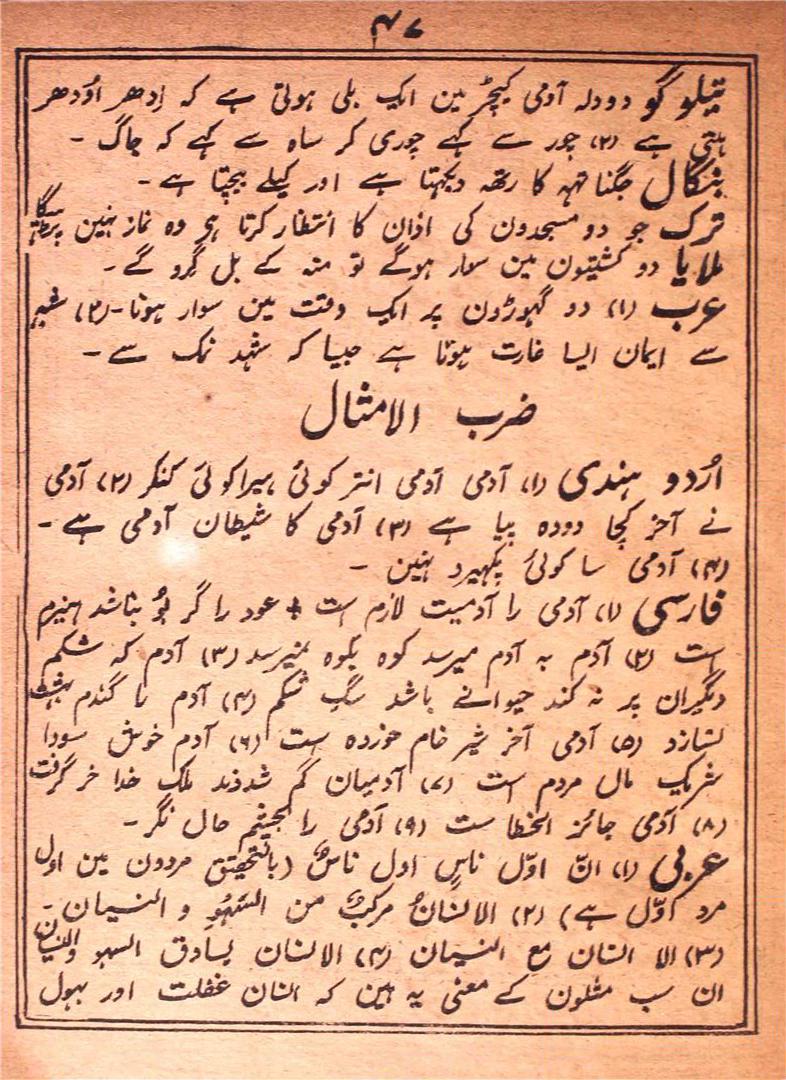 ۴۷
تیلوگو دودلہ آدمی کیچڑ مین ایک بلی ہوتی ہے کہ اِدھر اوُدھر
ہلتی ہے (۲) چور سے کہے چوری کر ساہ سے کہے کہ جاگ -
بنگال جگناتہہ کا رتھہ دیکہتا ہے اور کیلے بیچتا ہے -
ترک جو دو مسجدون کی اذان کا انتظار کرتا ہی وہ نماز نہین پڑھیگا
ملایا دو کشتیون مین سوار ہوگے تو منہ کے بل گرو گے -
عرب (۱) دو گہوڑون پر ایک وقت مین سوار ہونا - (۲) شبہ
سے ایمان ایسا غارت ہوتا ہے جیسا کہ شہد نمک سے -
ضرب الامثال
اُردو ہندی (۱) آدمی آدمی انتر کوئی ہیرا کوئی کنکر (۲) آدمی
نے آخر کچا دودہ پیا ہے (۳) آدمی کا شیطان آدمی ہے -
(۴) آدمی سا کوئی پکہیرو نہین -
فارسی (۱) آدمی را آدمیت لازم است + عود را گر بوُ نباشد ہیزم
است (۲) آدم بہ آدم میرسد کوہ بکوہ نمیرسد (۳) آدم کہ شکم
دیگران پر نہ کند حیوانے باشد سگِ شکم (۴) آدم تا گندم بہشت
نسازد (۵) آدمی آخر شیر خام خوردہ است (۶) آدم خوش سودا
شریک مال مردم است (۷) آدمیان گم شدند ملک خدا خر گرفت
(۸) آدمی جائز الخطا ست (۹) آدمی را بچشمِ حال نگر -
عربی (۱) انّ اوّل ناسٍ اول ناسٌ (بالتحقیق مردون مین اول
مرد اوّل ہے) (۲) الانسانُ مرکبٌ من السّہوِ و النسیان -
(۳) الا نسان مع النسیان (۴) الانسان یسادق السہو والنسیان
ان سب مثلون کے معنی یہ ہین کہ انسان غفلت اور بہول